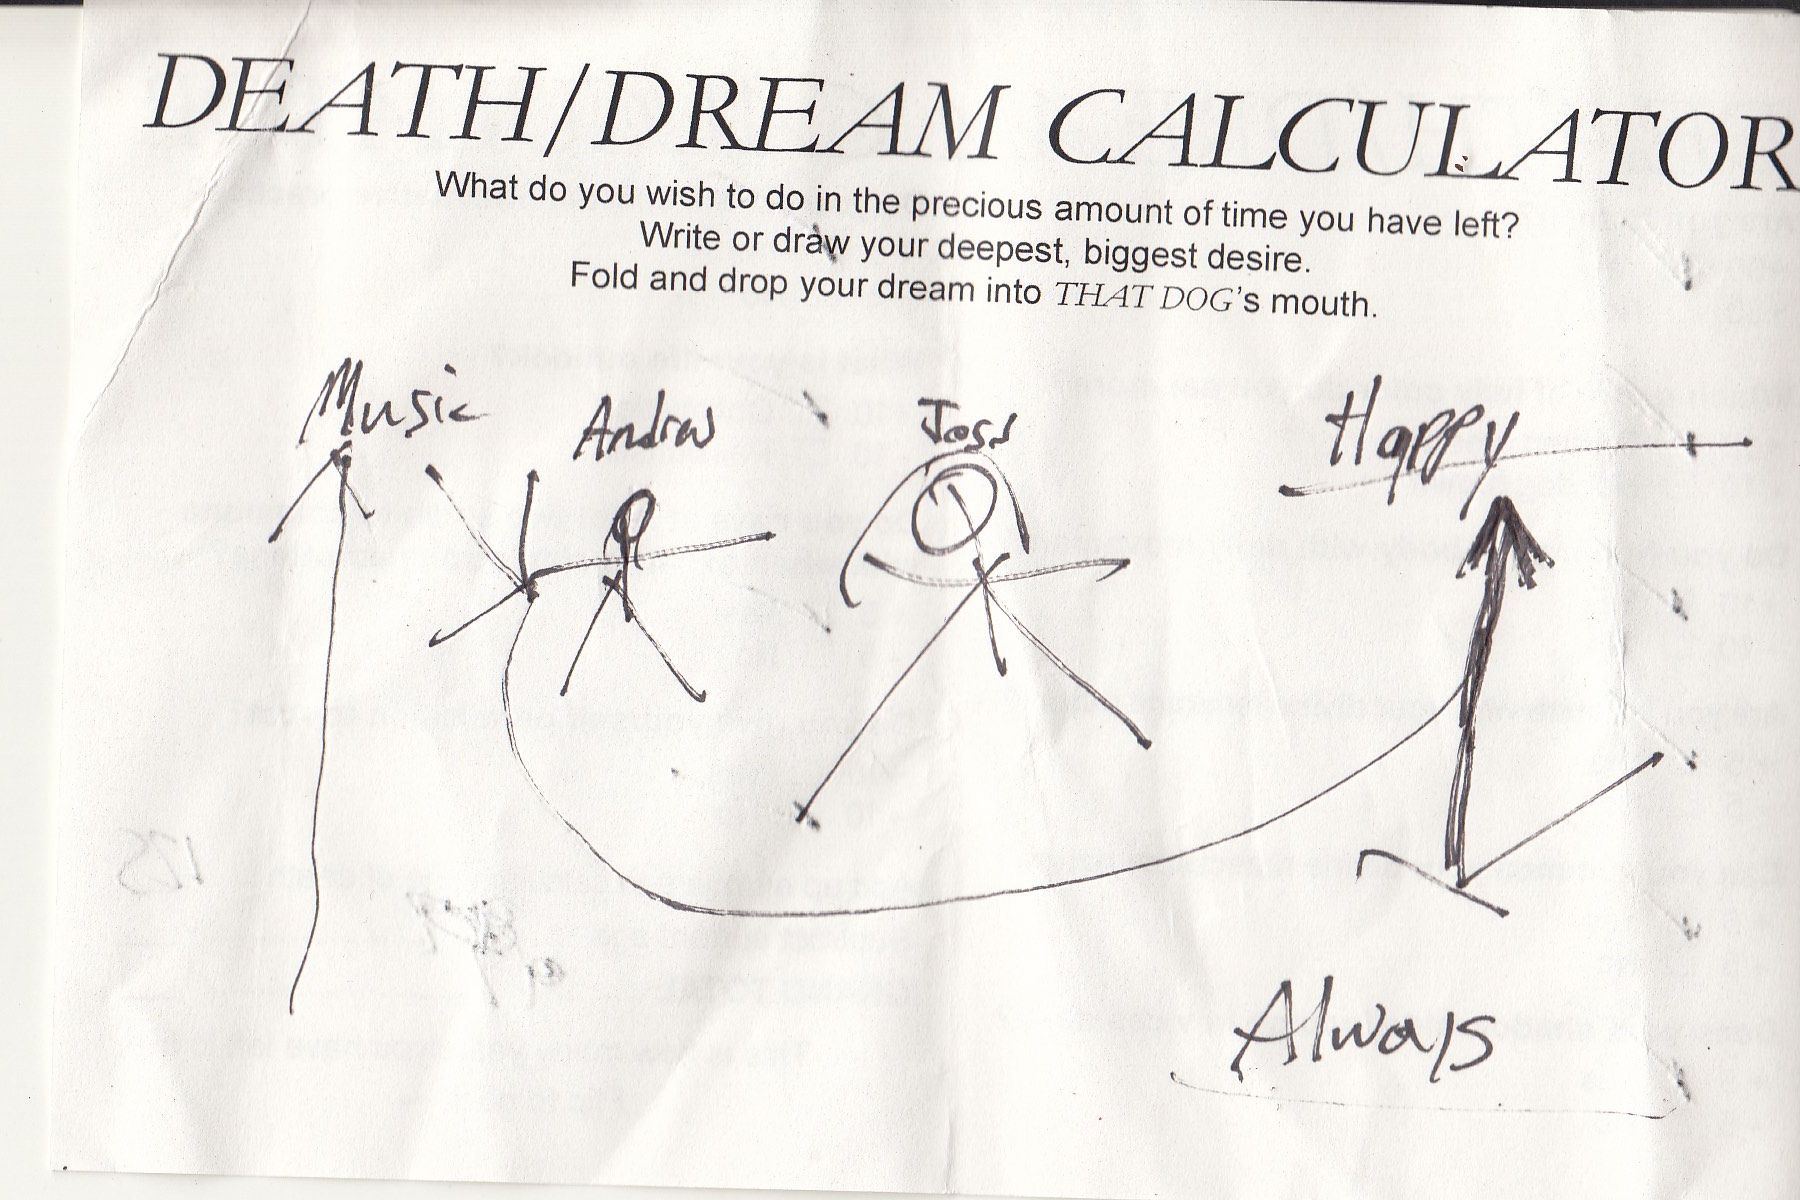 DEATH/DREAM CALCULATOR
What do you wish to do in the precious amount of time you have left?
Write or draw your deepest, biggest desire.
Fold and drop your dream into THAT DOG's mouth.
Music Andrew Joss Happy
Always